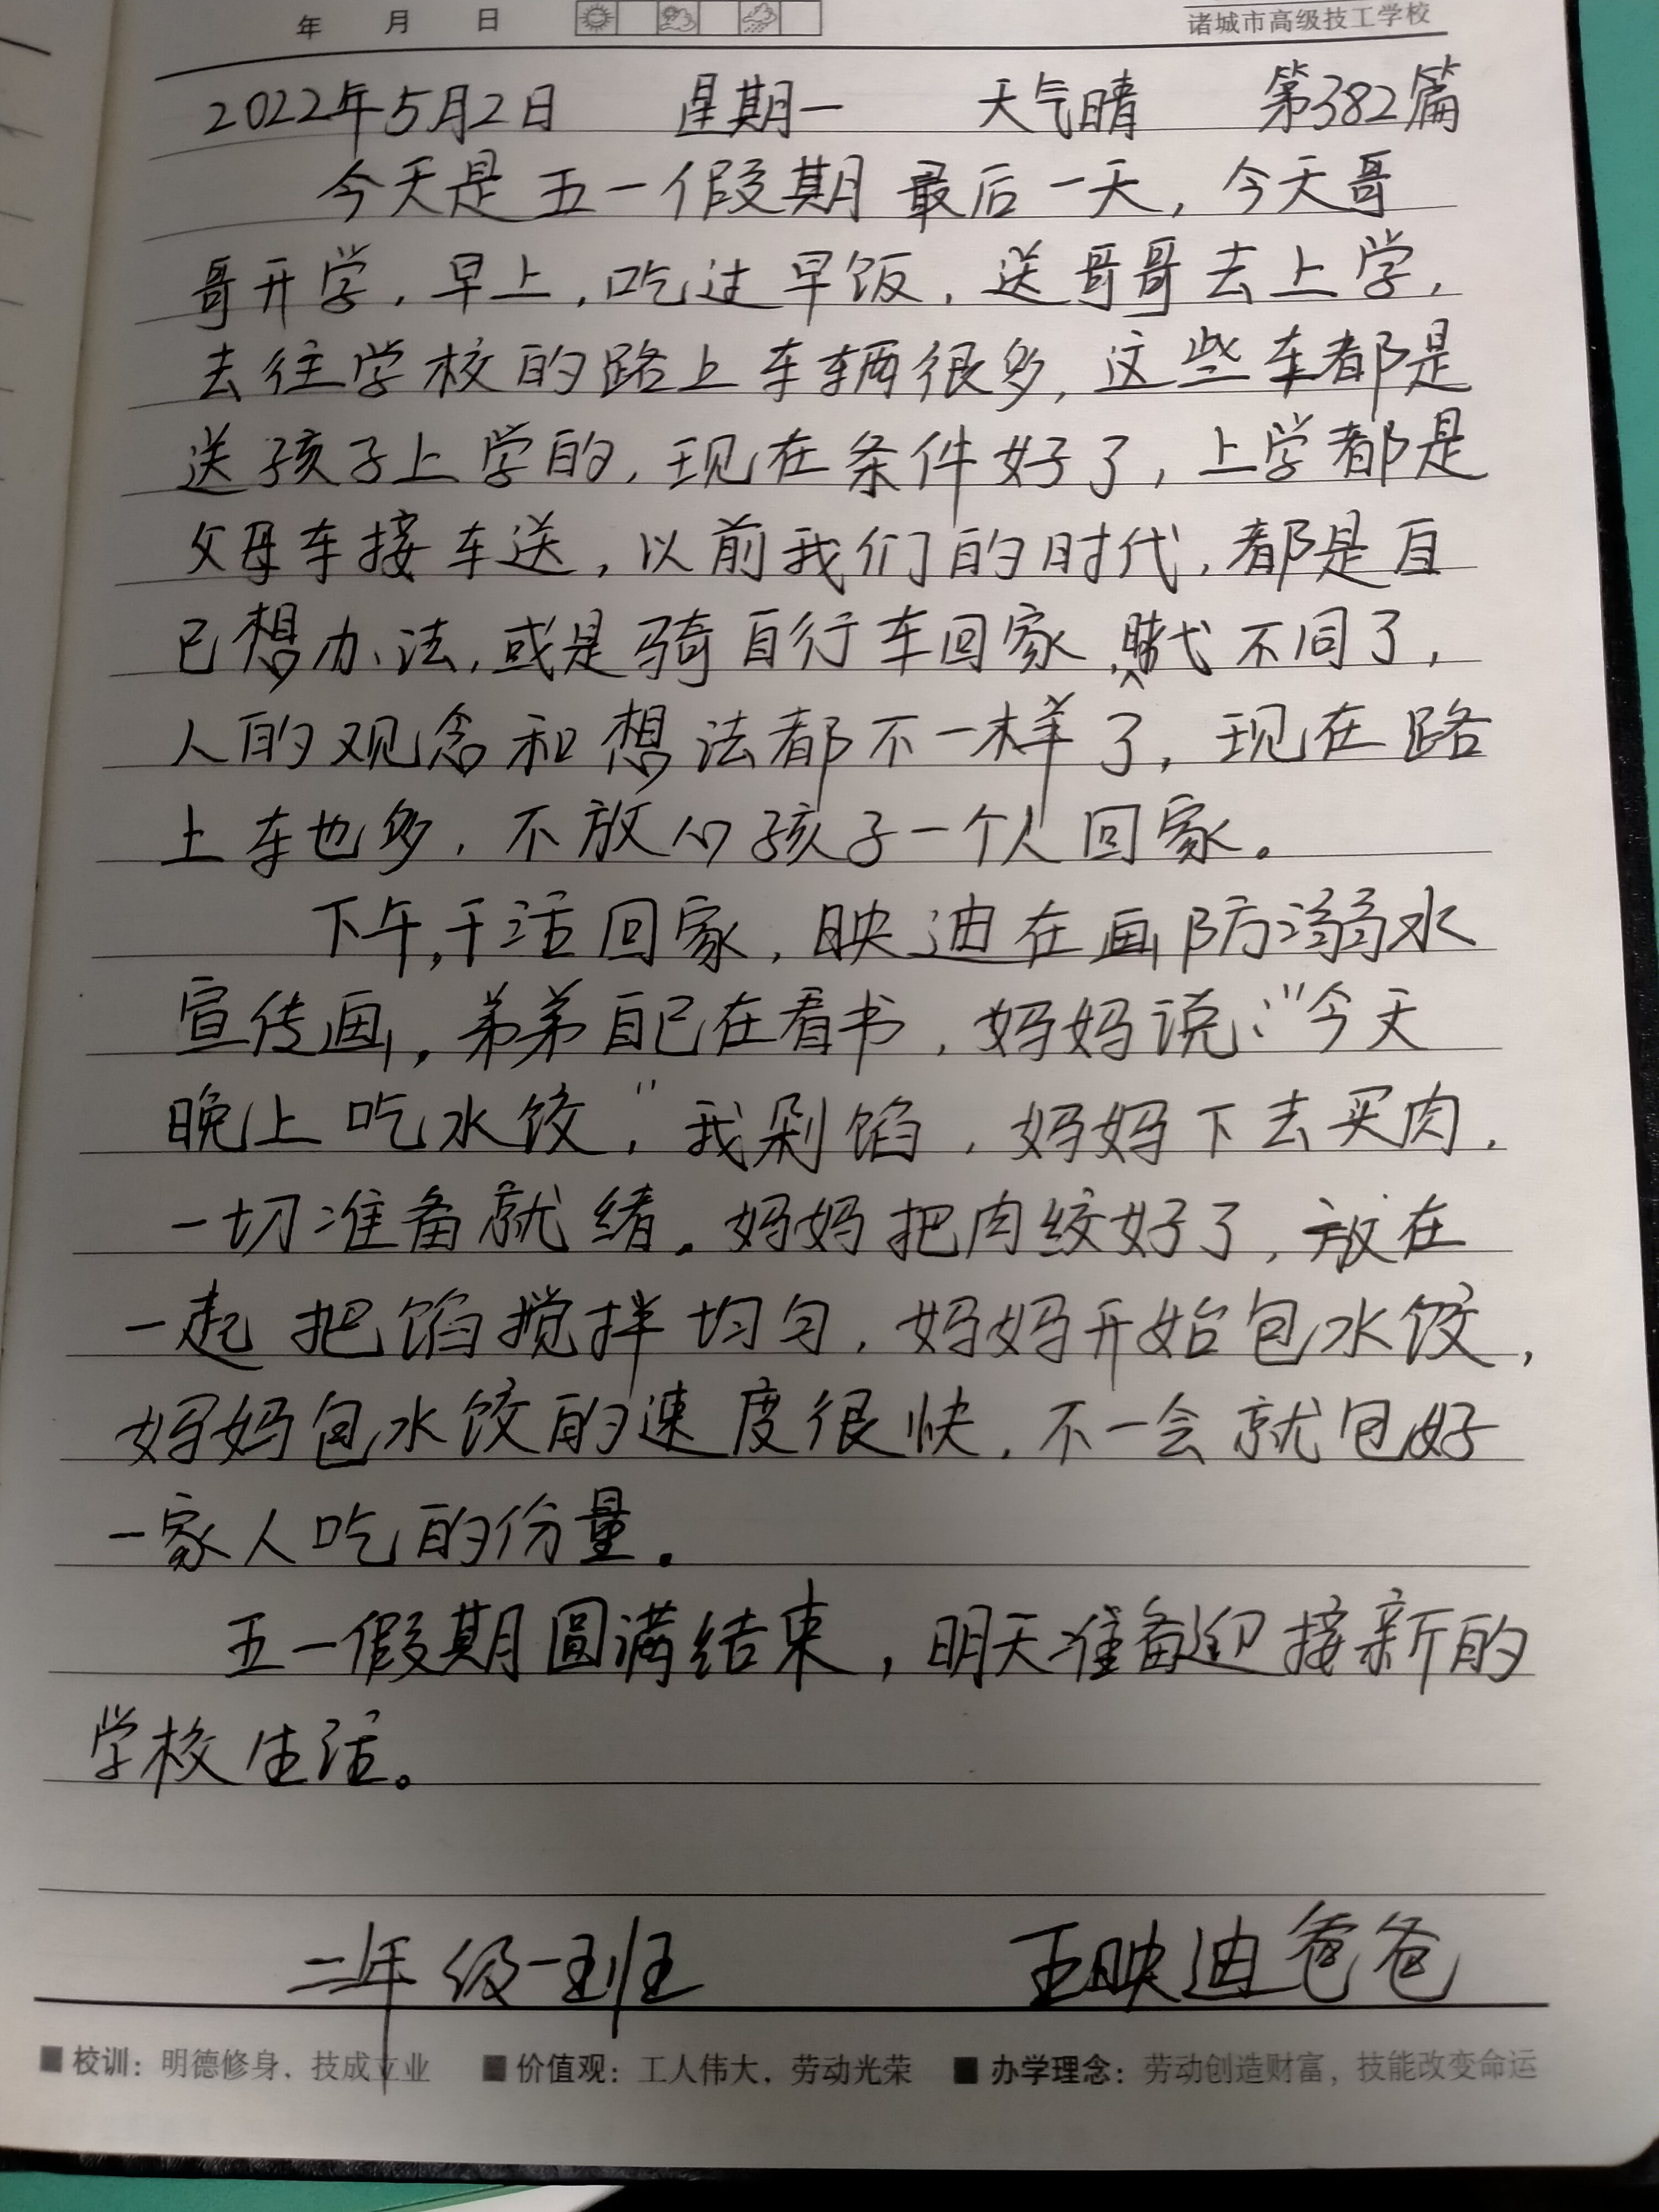 年 月 日
诸城市高级技工学校
2022年5月2日 星期一 天气晴 第382篇
今天是五一假期最后一天，今天哥
哥开学，早上，吃过早饭，送哥哥去上学，
去往学校的路上车辆很多，这些车都是
送孩子上学的，现在条件好了，上学都是
父母车接车送，以前我们的时代，都是自
己想办法，或是骑自行车回家，时代不同了，
人的观念和想法都不一样了，现在路
上车也多，不放心孩子一个人回家。
下午，干活回家，映迪在画防溺水
宣传画，弟弟自己在看书，妈妈说：“今天
晚上吃水饺，”我剁馅，妈妈下去买肉，
一切准备就绪。妈妈把肉绞好了，放在
一起把馅搅拌均匀，妈妈开始包水饺，
妈妈包水饺的速度很快，不一会就包好
一家人吃的份量。
五一假期圆满结束，明天准备迎接新的
学校生活。
二年级一班 王映迪爸爸
校训：明德修身，技成立业 价值观：工人伟大，劳动光荣 办学理念：劳动创造财富，技能改变命运